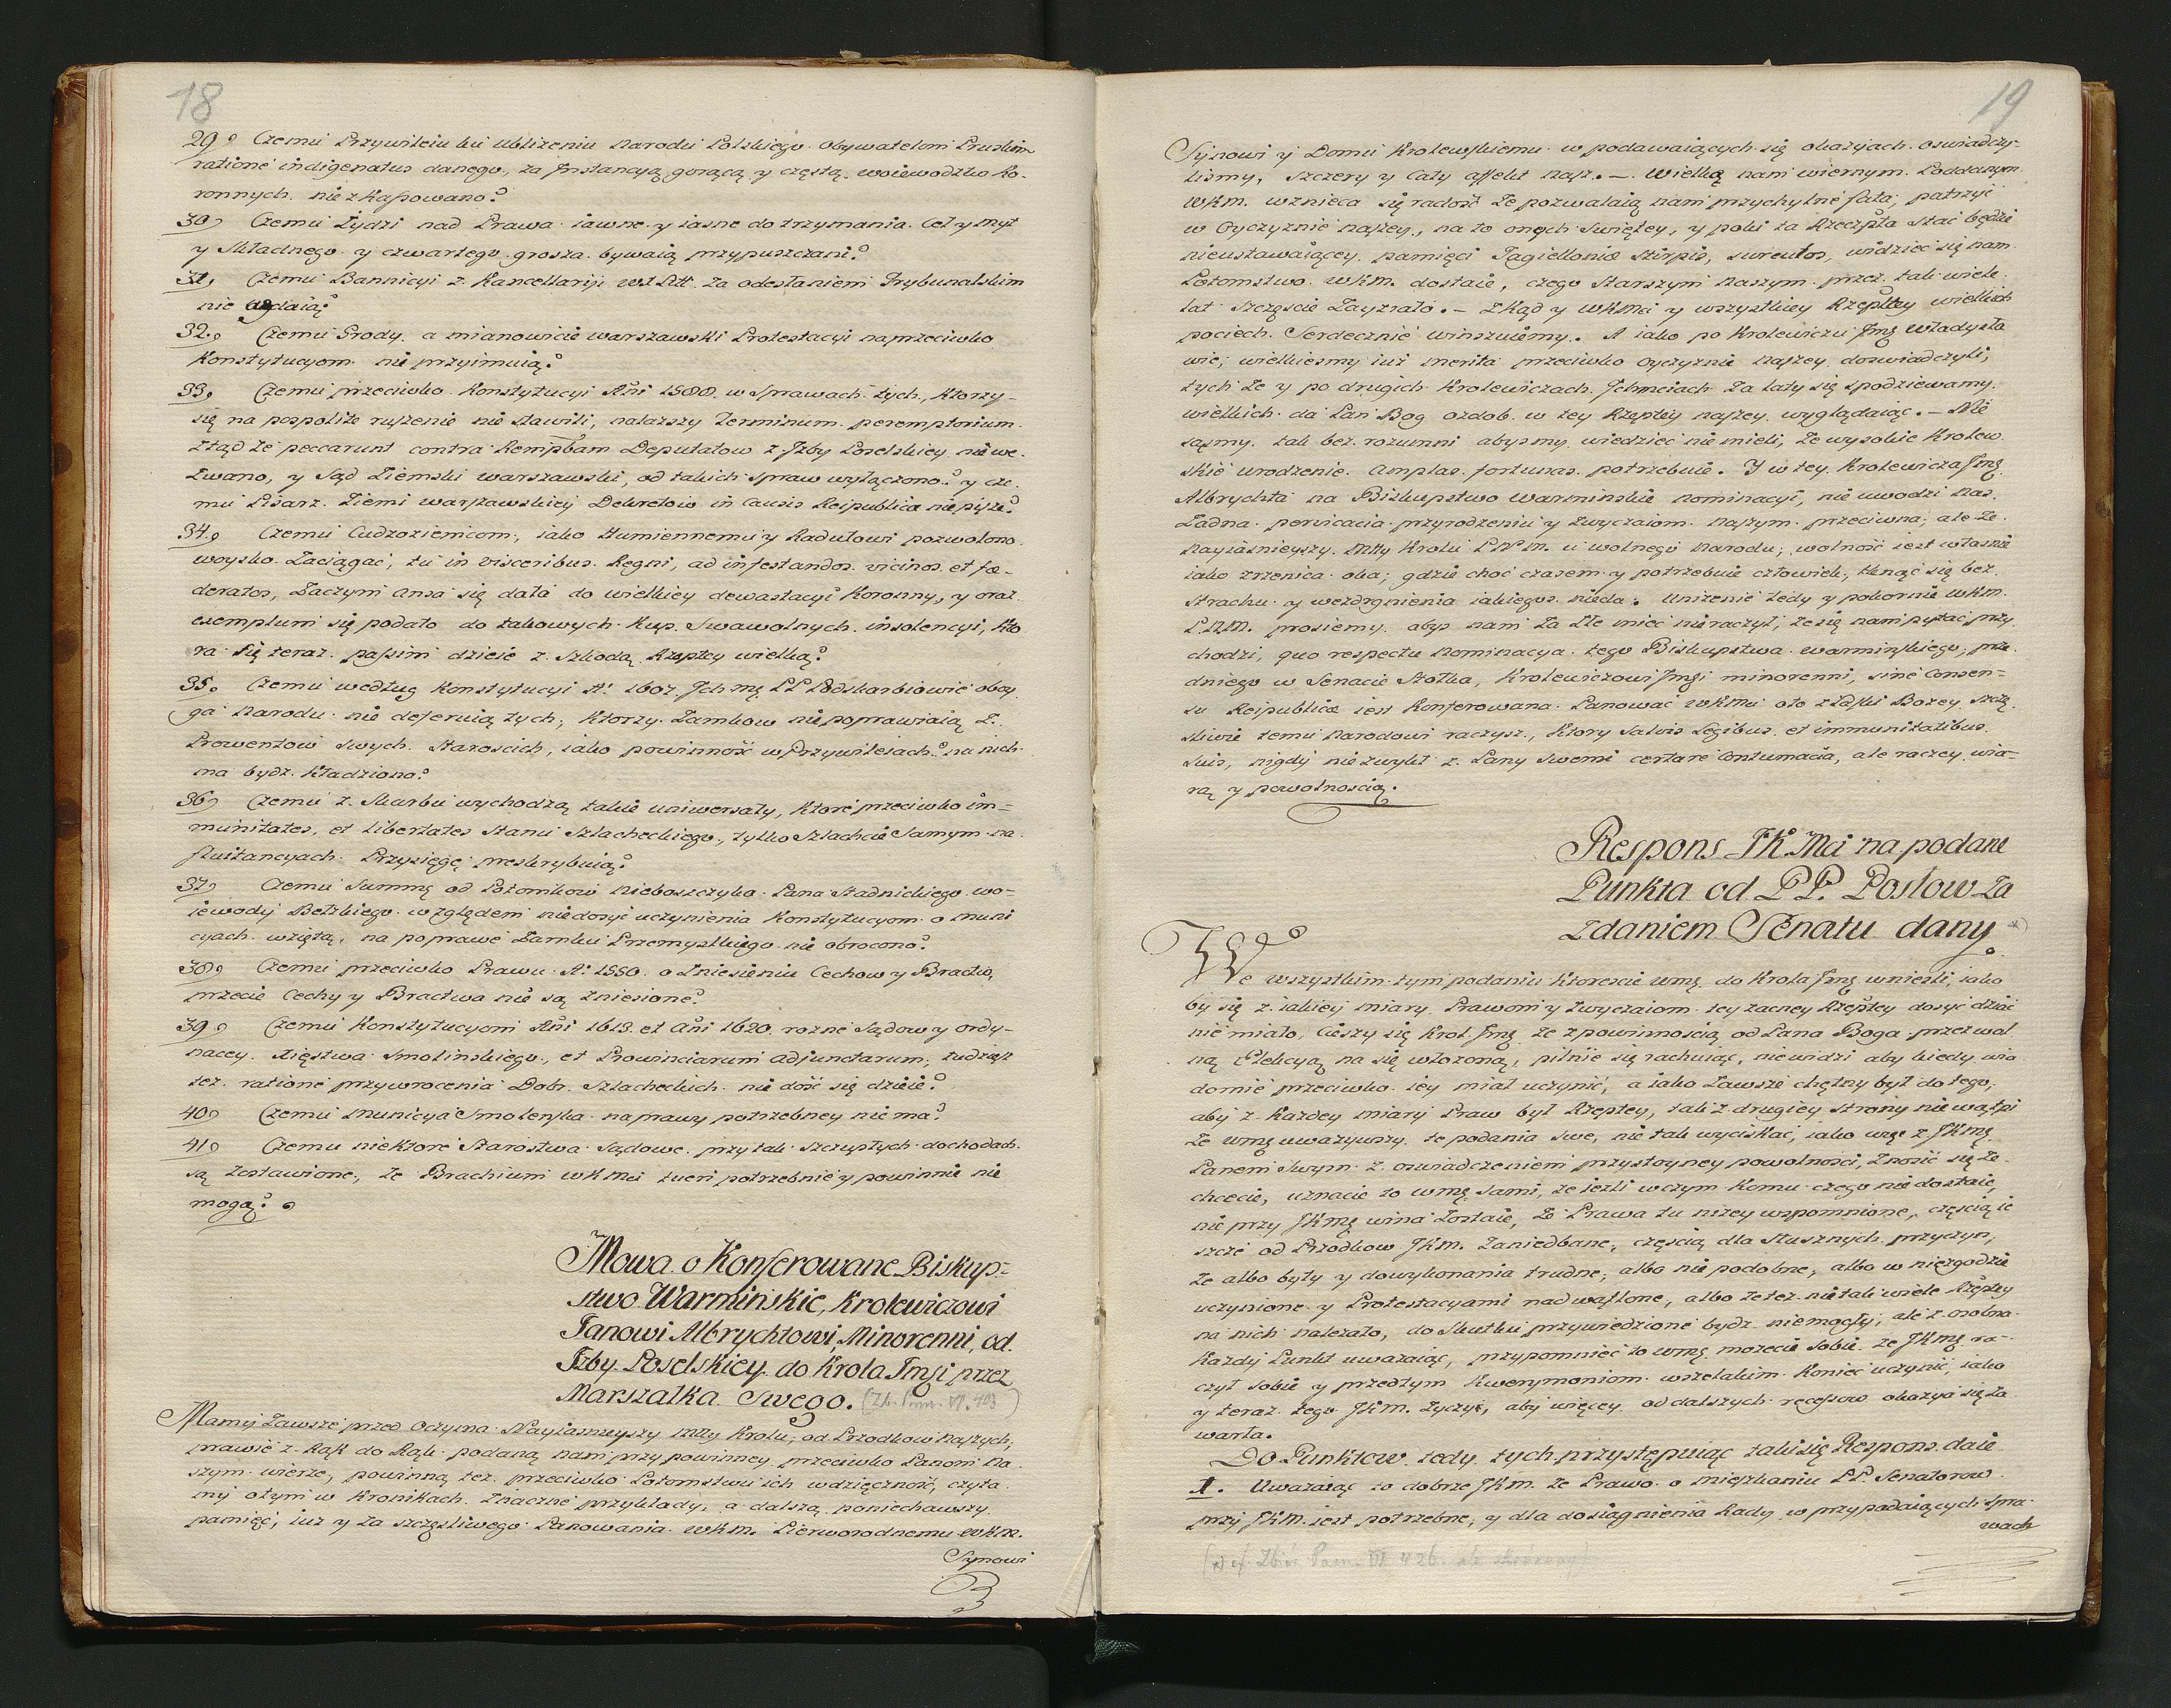 18
29. Czemu Przywileiu ku ubliżeniu Narodu Polskiego Obywatelom Pruskim
ratione indigenatus danego, za Jnstancyą gorącą y częstą woiewodztw Ko-
ronnych nie zkassowano?
30. Czemu Żydzi nad Prawa iawne y iasne do trzymania Cel y myt
y Składnego y czwartego grosza bywaią przypuszczani?
31. Czemu Bannicyi z Kancellaryi za odesłaniem Trybunalskim
nie
32. Czemu Grody, a mianowicie warszawski Protestacyi naprzeciwko
Konstytucyom nie przyimuią?
33. Czemu przeciwko Konstytucyi Ani 1588. w Sprawach tych, Ktorzy
się na pospolite ruszenie nie stawili, nalazszy Terminum peremptorium
ztąd że peccarunt contra Rempbam Deputatow z Jzby Poselskiey nie we-
zwano, y Sąd Ziemski warszawski, od takich spraw wyłączono? y cze-
mu Pisarz Ziemi warszawskiey Dekretow in Causis Reipublicæ nie pisze?
34. Czemu Cudzoziemcom, iako Humiennemu y Radułowi pozwolono
woysko Zaciągać, tu in visceribus Regni, ad infestandos vicinos et fœ-
deratos, Zaczym ansa się dała do wielkiey dewastacyi Koronny, y oraz
exemplum się podało do takowych Kup Swawolnych insolencyi, Kto
ra się teraz passim dzieie z Szkodą Rzeptey wielką?
35. Czemu według Konstytucyi A: 1607. Jch mę PP Podskarbiowie oboy-
ga Narodu nie deferuią tych, Ktorzy Zamkow nie poprawiaią z
Prowentow Swych Starościch, iako powinność w Przywileiach na nich
ma bydz kładziona?
36. Czemu z Skarbu wychodzą takie uniwersały, Ktore przeciwko im-
munitates, et libertates Stanu Szlacheckiego, tylko Szlachcie Samym na
Przysięgę preskrybuią?
37. Czemu Summę od Potomkow Nieboszczyka Pana Stadnickiego wo-
iewody Bełzkiego względem niedosyć uczynienia Konstytucyom o muni
cyach wziętą, na poprawę Zamku Przemyslkiego nie obrocono?
38. Czemu przeciwko Prawu A: 1550. o Zniesieniu Cechow y Bractw,
przecie Cechy y Bractwa nie są zniesione?
39. Czemu Konstytucyom Ani 1613. et Ani 1620. rozne Sądow y ordy-
nacey Xięstwa Smolinskiego, et Prowinciarum adjunctarum, tudziesz
tez ratione przywrocenia Dobr Szlacheckich nie dość się dzieie?
40. Czemu Municya Smolenska naprawy potrzebney nie ma?
41. Czemu niektore Starostwa Sądowe przy tak szczupłych dochodach
są Zostawione, że Brachium WKMci tueri potrzebnie y powinnie nie
mogą?
Mowa o Konferowane Biskup-
stwo Warminskie, Krolewiczowi
Janowi Albrychtowi, Minorenni, od
Jzby Poselskiey do Krola Jmsi przez
Marszałka Swego. (Zb. Pam. VI. 403)
Mamy Zawsze przed Oczyma Nayiasnieyszy Mtty Krolu, od Przodkow naszych,
prawie z Rąk do Rąk podaną nam przy powinney przeciwko Panom Na-
szym wierze, powinną tez przeciwko Potomstwu ich wdzięczność, czyta-
my otym w Kronikach Znaczne przykłady, a dalszą poniechawszy
pamięć, iuz y za szczęśliwego Panowania WKM. Pierworodnemu WKM.
Synowi
19
Synowi y Domu Krolewskiemu w podawaiących się okazyach oswiadczy-
lismy, Szczery y Cały affekt nasz. – Wielką nam wiernym Poddanym
WKM. wznieca się radość że pozwalaią nam przychylne fata, patrzyć
w Oyczyznie naszey, na to onych Swiętey, y poki ta Rzeczplta stać będzie
nieustawaiącey pamięci Jagiellonicæ Stirpis, widzieć się nam
Potomstwo WKM. dostaie, czego Starszym Naszym przez tak wiele
lat Szczęscie Zayzrało. – Zkąd y WKMci y wszystkiey Rzeptey wielkich
pociech Serdecznie winszuiemy. A iako po Krolewiczu Jmę Władysła
wie, wielkiesmy iuż merita przeciwko Oyczyznie naszey doswiadczyli,
tych że y po drugich Krolewiczach Jchmciach Za laty się spodziewamy,
wielkich da Pan Bog ozdob w tey Rzeptey naszey wyglądaiąc. – Nie
sąsmy tak bez rozumni abysmy wiedzieć nie mieli, że wysokie Krolew-
skie urodzenie amplas fortunas potrzebuie. Y w tey Krolewicza Jmę
Albrychta na Biskupstwo Warminskie Nominacyi, nie uwodzi nas
Zadna pervicacia przyrodzeniu y zwyczaiom naszym przeciwna, ale że
Nayiasnieyszy Mtty Krolu PNM. u wolnego Narodu, wolność iest własnie
iako zrzenica oka, gdzie choć czasem y potrzebuie człowiek, tknąć się bez
strachu y wezdrgnienia iakiegos nieda. Unizenie tedy y pokornie WKM.
PNM. prosiemy abys nam za złe mieć nie raczył, że się nam pytać przy-
chodzi, quo respectu Nominacya tego Biskupstwa Warminskiego, prze-
dniego w Senacie Stołka, Krolewiczowi Jmsi minorenni, sine Consen-
su Reipublicæ iest konferowana. Panować WKMci oto z łaski Bozey szczę-
śliwie temu Narodowi raczysz, Ktory Salvis Legibus et immunitatibus
Suis, nigdy nie zwykł z Pany Swemi certare Contumacia, ale raczey wia-
rą y powolnoscią.
Respons JK Mci na podane
Punkta od PP. Posłow Za
zdaniem Senatu dany *)
We wszystkim tym podaniu Ktoreście wmę do Krola Jmę wnieśli, iako
by się z iakiey miary Prawom y Zwyczaiom tey zacney Rzeptey dosyć dziać
nie miało, Cieszy się Krol Jmę że z powinnością od Pana Boga przez wol
ną Elekcyą na się włożoną, pilnie się rachuiąc, nie widzi aby kiedy wia
domie przeciwko iey miał uczynić, a iako Zawsze chętny był do tego,
aby z Kazdey miary Praw był Rzeptey, tak z drugiey strony nie wątpi
że wmę uwazywszy te podania swe, nie tak wyciskać, iako więc z JKmę
Panem Swym z oswiadczeniem przystoyney powolności, Znosić się ze
chcecie, uznacie to wmę sami, że iezli w czym komu czego nie dostaie,
nie przy JKmę wina Zostaie, że Prawa tu nizey wspomnione, częścią ie
szcze od Przodkow JKm. Zaniedbane, częścią dla Słusznych przyczyn,
że albo były y do wykonania trudne, albo nie podobne, albo w niezgodzie
uczynione y Protestacyami nadwątlone, albo że tez nie tak wiele Rzeptey
na nich nalezało, do Skutku przywiedzione bydz niemogły, ale z osobna
Kazdy Punkt uwazaiąc, przypomnieć to wmę mozecie sobie że JKmę ra-
czył sobie y przedtym Kwerymoniom wszelakim Koniec uczynić, iako
y teraz tego JKm. życzy, aby więcey od dalszych recessow okazya się za
warła.
Do Punktow tedy tych przystępuiąc taki się Respons daie
1. Uwazaiąc to dobrze JKm. że Prawo o mieszkaniu PP. Senatorow
przy JKM. iest potrzebne, y dla dosiągnienia Rady w przypadaiących spra-
wach
*) cf. Zbiór Pam. VI 426. ale skrócony)